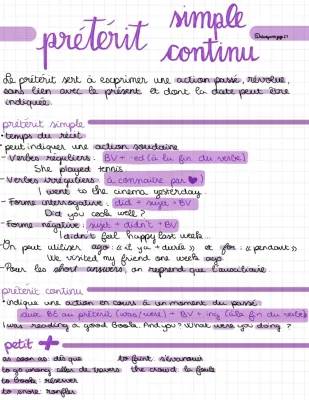 prétérit simple
continu
Le prétérit sert à exprimer une action passé, révolue,
sans lien avec le présent et dont la date peut être
indiquée.
prétérit simple
• temps du récit
• peut indiquer une action soudaine
- Verbes réguliers : BV + -ed (à la fin du verbe)
She played tennis
- Verbes irréguliers : à connaître par ♥)
I went to the cinema yesterday.
- Forme interrogative : did + sujet + BV
Did you cook well ?
- Forme négative : sujet + didn't + BV
I didn't feel happy last week.
On peut utiliser ago : « il y a + durée » et for : « pendant »
We visited my friend one week ago.
- Pour les short answers, on reprend que l'auxiliaire.
prétérit continu
• indique une action en cours à un moment du passé
aux BE au prétérit (was/were) + BV + ing (à la fin du verbe)
I was reading a good book. And you? What were you doing ?
petit +
as soon as: dès que to faint: s'évanouir
to go wrong: aller de travers the crowd: la foule
to book: réserver
to snore: ronfler